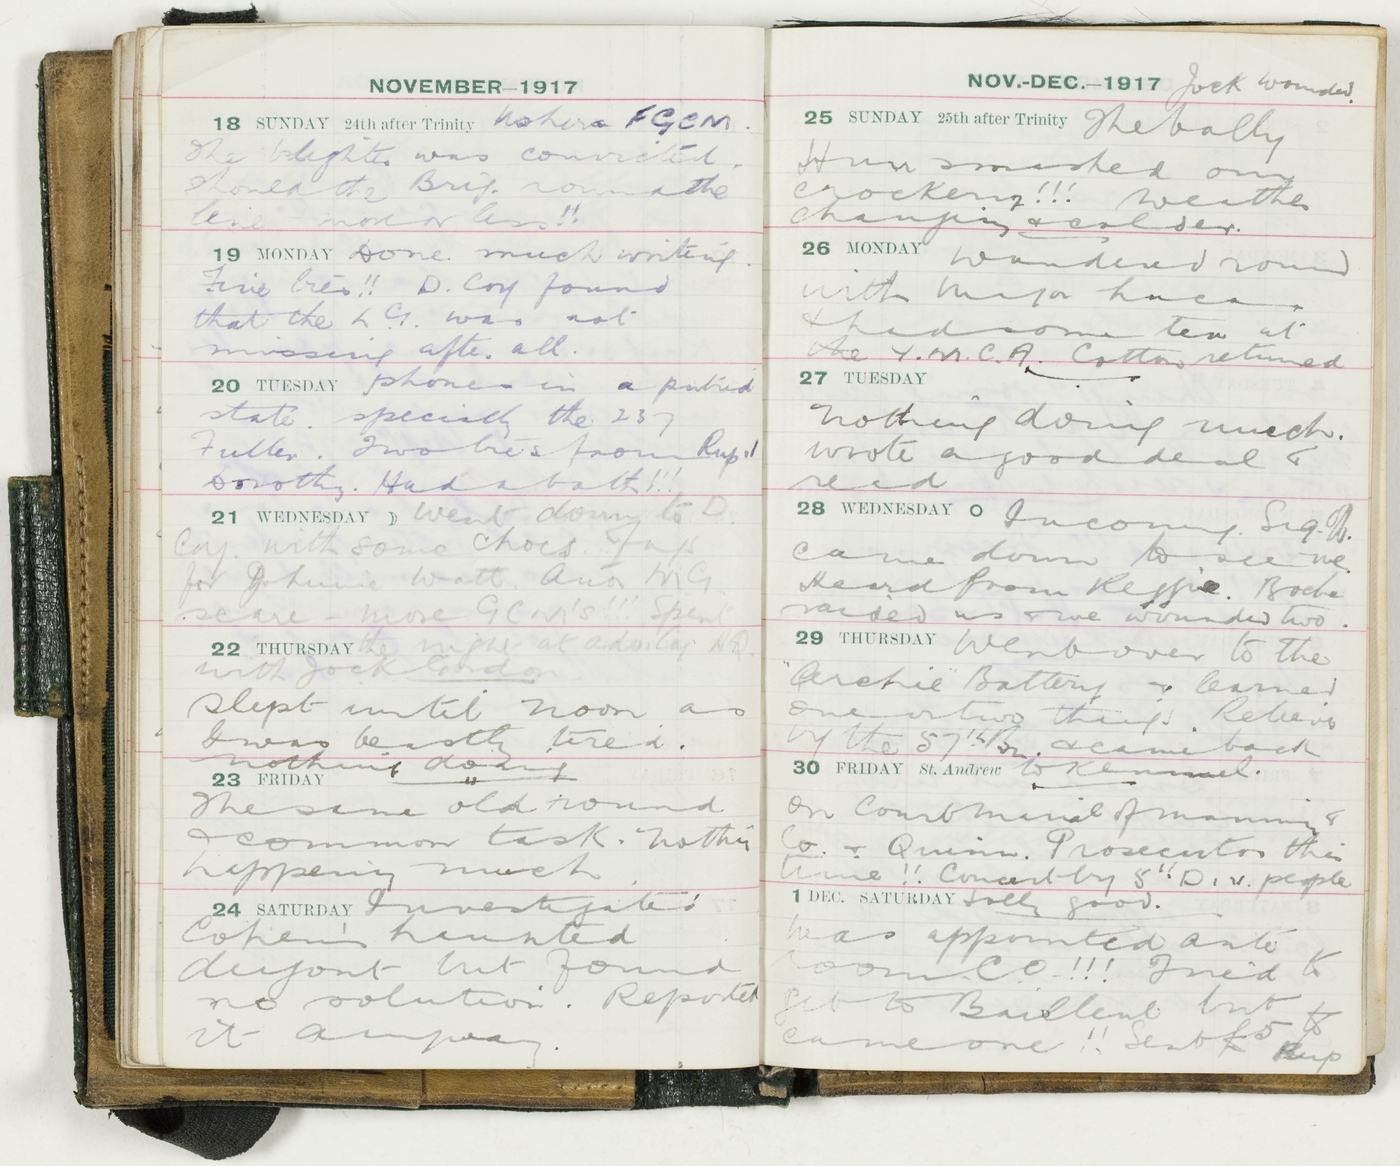 NOVEMBER—1917
18 SUNDAY 24th after Trinity FGCM.
The blighter was convicted.
Showed the Brig. round the
line more or less!!
19 MONDAY Done much writing.
Five lres!! D. Coy found
that the L.G. was not
missing after all.
20 TUESDAY phones in a putrid
state. specially the 237
Fuller. Two lres from Rup &
Dorothy. Had a bath!!!
21 WEDNESDAY Went down to D
Coy. with some chocs.
for Johnnie Watt. Anor
scare – more GCM's!!! Spent
22 THURSDAY the night at
with Jock
Slept until noon as
I was beastly tired.
Nothing doing
23 FRIDAY
The same old round
& common task. Nothin
happening much
24 SATURDAY Investigated
Cohen's haunted
dugout but found
no solution. Reported
it anyway.
NOV.-DEC.—1917 Jock wounded.
25 SUNDAY 25th after Trinity The bally
Hun smashed our
crockery!!! Weather
changing & colder.
26 MONDAY Wandered round
with Major Lucas
& had some tea at
the Y.M.C.A. Cotton returned
27 TUESDAY
Nothing doing much.
wrote a good deal &
read
28 WEDNESDAY Incoming Sig. O.
came down to see me.
Heard from Reggie. Boche
raided us & we wounded two.
29 THURSDAY Went over to the
"Archie" Battery & learned
one or two things. Relieved
by the 57th Bn. & came back
30 FRIDAY St. Andrew to Kemmel.
On Court Martial of Manning &
Co. & Quinn. Prosecutor this
time!! Concert by 8th Div. people
1 DEC. SATURDAY Jolly good.
Was appointed ante
room CO!!! Tried to
get to Bailleul but
came one!! Sent £5 to
Rup